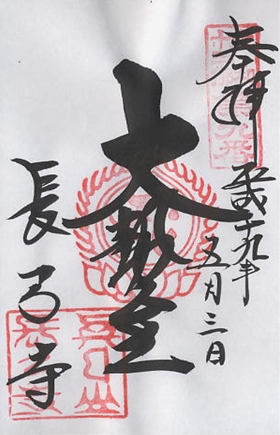 奉拝
平成十九年
五月三日
大勢至
長弓寺